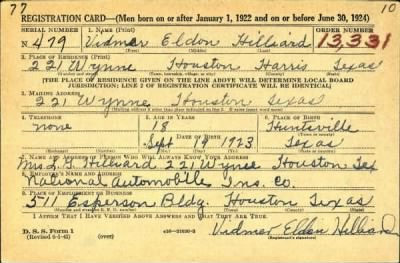 77
10
REGISTRATION CARD—(Men born on or after January 1, 1922 and on or before June 30, 1924)
SERIAL NUMBER 1. NAME (Print) ORDER NUMBER
N 479 Vidmer Eldon Hilliard 13,331
2. PLACE OF RESIDENCE (Print)
221 Wynne Houston Harris Texas
[THE PLACE OF RESIDENCE GIVEN ON THE LINE ABOVE WILL DETERMINE LOCAL BOARD
JURISDICTION; LINE 2 OF REGISTRATION CERTIFICATE WILL BE IDENTICAL]
3. MAILING ADDRESS
221 Wynne Houston Texas
4. TELEPHONE 5. AGE IN YEARS 6. PLACE OF BIRTH
none 18 Huntsville
Sept 19 1923 Texas
7. NAME AND ADDRESS OF PERSON WHO WILL ALWAYS KNOW YOUR ADDRESS
Mrs. L. G. Hilliard 221 Wynne Houston Tex
8. EMPLOYER'S NAME AND ADDRESS
National Automobile Ins. Co.
9. PLACE OF EMPLOYMENT OR BUSINESS
511 Esperson Bldg. Houston Texas
I AFFIRM THAT I HAVE VERIFIED ABOVE ANSWERS AND THAT THEY ARE TRUE.
D. S. S. Form 1
(Revised 6-9-41) 16—21630-2 Vidmer Eldon Hilliard
(Registrant's signature)